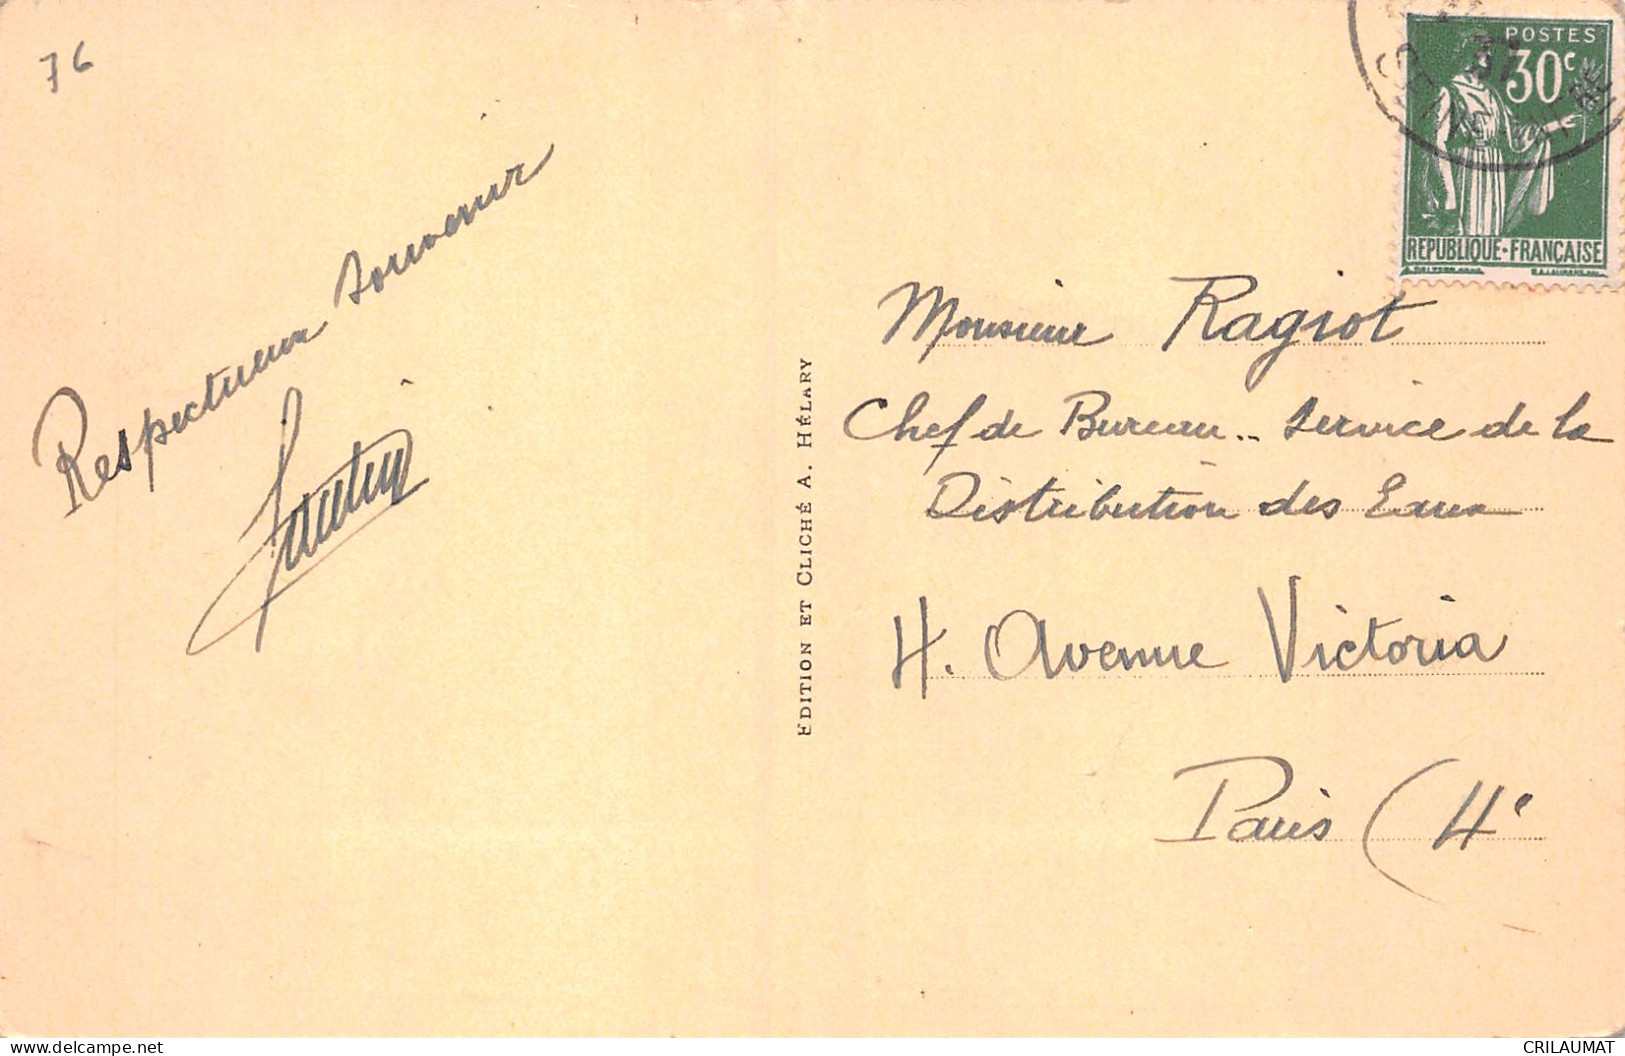 76
Respectueux souvenir
EDITION ET CLICHÉ A. HÉLARY
POSTES
30c
37
REPUBLIQUE·FRANÇAISE
Monsieur Ragiot
Chef de Bureau.. Service de la
Distribution des Eaux
4. Avenue Victoria
Paris (4e
delcampe.net
CRILAUMAT